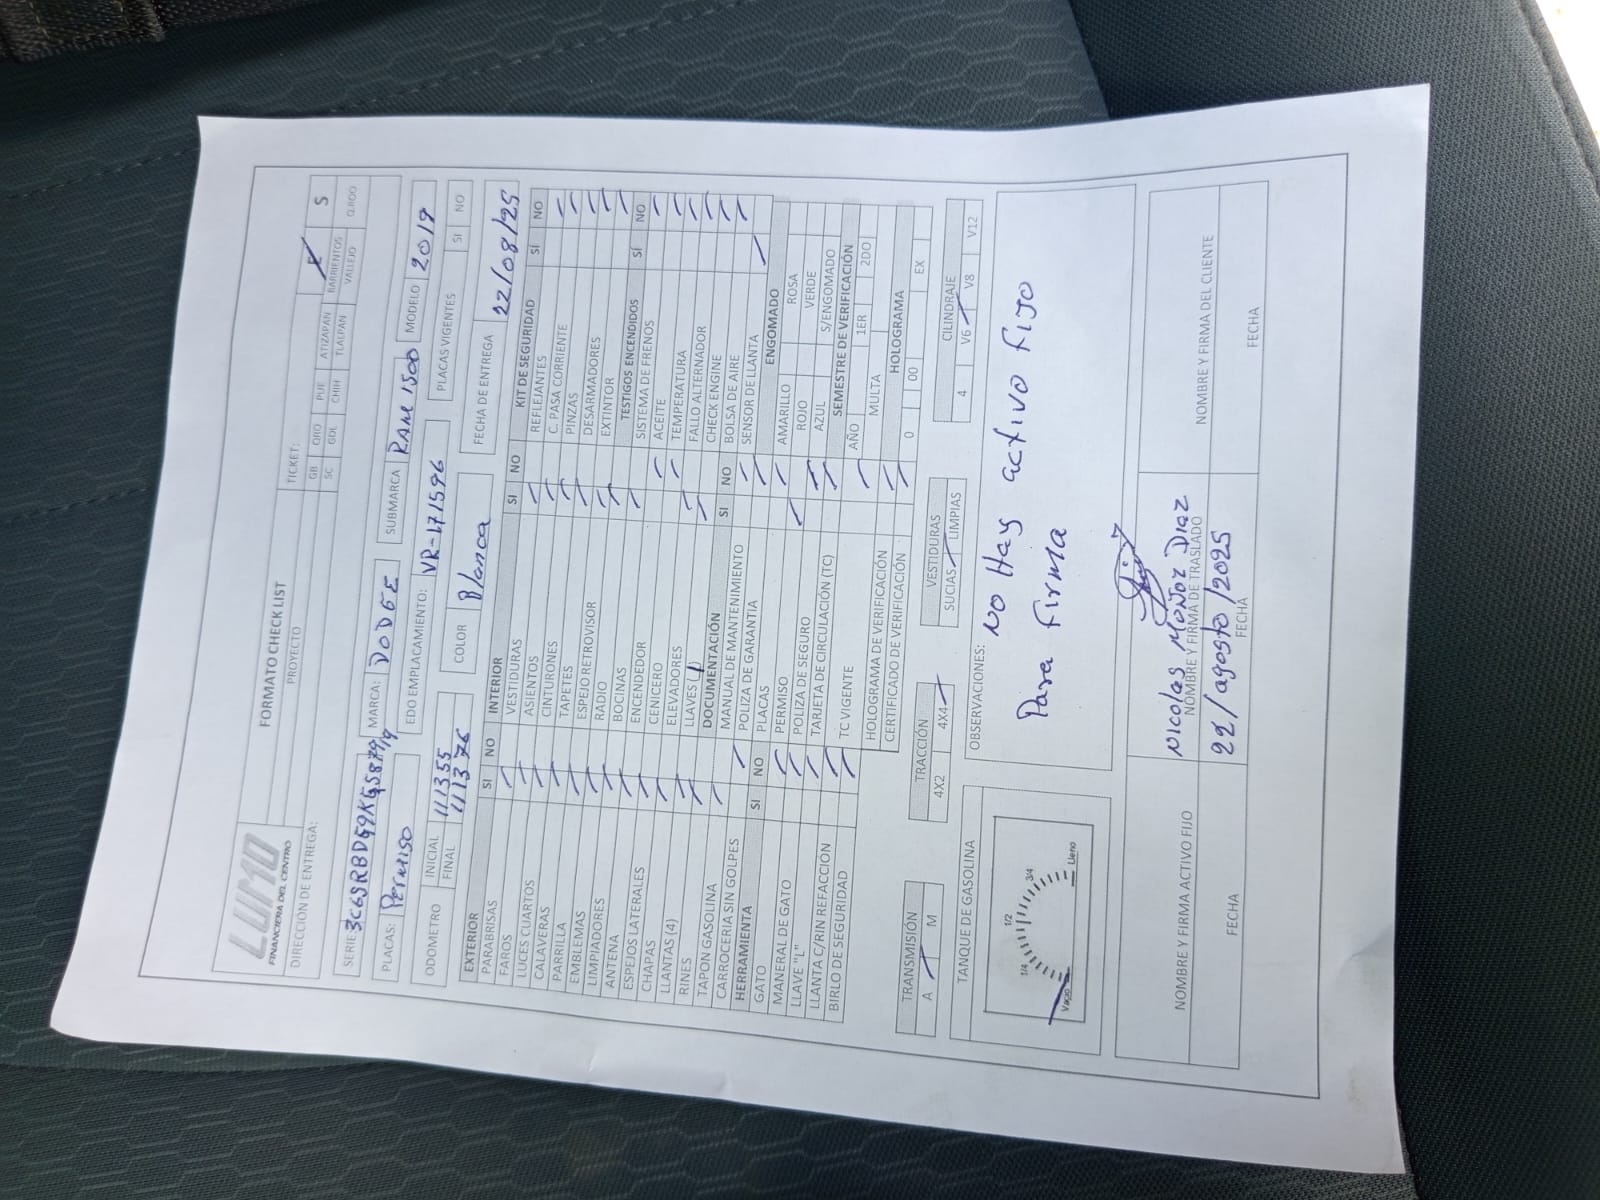 LUMO
FINANCIERA DEL CENTRO
FORMATO CHECK LIST
PROYECTO
TICKET:
DIRECCIÓN DE ENTREGA:
GB ORO PUE ATIZAPAN BARRIENTOS
SC GDL CHIH TLALPAN VALLEJO Q.ROO
E S
SERIE
MARCA: DODGE SUBMARCA RAM 1500 MODELO 2019
PLACAS: Permiso EDO EMPLACAMIENTO: VR-171596 PLACAS VIGENTES SI NO
ODOMETRO INICIAL 111355
FINAL 111376
COLOR Blanca FECHA DE ENTREGA 22/08/25
EXTERIOR SI NO
PARABRISAS
FAROS
LUCES CUARTOS
CALAVERAS
PARRILLA
EMBLEMAS
LIMPIADORES
ANTENA
ESPEJOS LATERALES
CHAPAS
LLANTAS (4)
RINES
TAPON GASOLINA
CARROCERIA SIN GOLPES
HERRAMIENTA SI NO
GATO
MANERAL DE GATO
LLAVE "L"
LLANTA C/RIN REFACCION
BIRLO DE SEGURIDAD
INTERIOR SI NO
VESTIDURAS
ASIENTOS
CINTURONES
TAPETES
ESPEJO RETROVISOR
RADIO
BOCINAS
ENCENDEDOR
CENICERO
ELEVADORES
LLAVES (1)
DOCUMENTACIÓN SI NO
MANUAL DE MANTENIMIENTO
POLIZA DE GARANTIA
PLACAS
PERMISO
POLIZA DE SEGURO
TARJETA DE CIRCULACIÓN (TC)
TC VIGENTE
HOLOGRAMA DE VERIFICACIÓN
CERTIFICADO DE VERIFICACIÓN
KIT DE SEGURIDAD SÍ NO
REFLEJANTES
C. PASA CORRIENTE
PINZAS
DESARMADORES
EXTINTOR
TESTIGOS ENCENDIDOS SÍ NO
SISTEMA DE FRENOS
ACEITE
TEMPERATURA
FALLO ALTERNADOR
CHECK ENGINE
BOLSA DE AIRE
SENSOR DE LLANTA
ENGOMADO
AMARILLO ROSA
ROJO VERDE
AZUL S/ENGOMADO
SEMESTRE DE VERIFICACIÓN
AÑO 1ER 2DO
MULTA
HOLOGRAMA
0 00 EX
TRANSMISIÓN
A M
TRACCIÓN
4X2 4X4
VESTIDURAS
SUCIAS LIMPIAS
CILINDRAJE
4 V6 V8 V12
TANQUE DE GASOLINA
Vacio 1/4 1/2 3/4 Lleno
OBSERVACIONES: No Hay activo Fijo
Para Firma
NOMBRE Y FIRMA ACTIVO FIJO
FECHA
Nicolas Muñoz Diaz
NOMBRE Y FIRMA DE TRASLADO
22/agosto/2025
FECHA
NOMBRE Y FIRMA DEL CLIENTE
FECHA